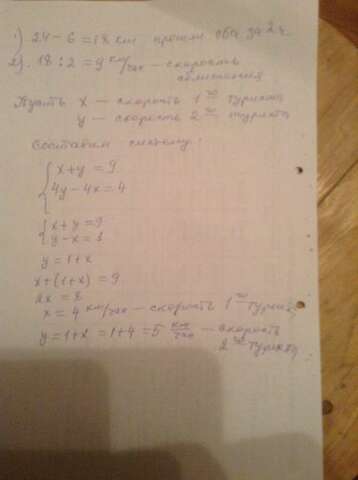 1) 24 - 6 = 18 км прошли оба за 2 ч.
2). 18 : 2 = 9 км/час - скорость
сближения
Пусть x - скорость 1 го туриста
y - скорость 2 го туриста
Составим систему:
{ x + y = 9
4y - 4x = 4
{ x + y = 9
y - x = 1
y = 1 + x
x + (1 + x) = 9
2x = 8
x = 4 км/час - скорость 1 го туриста
y = 1 + x = 1 + 4 = 5 км/час - скорость
2 го туриста